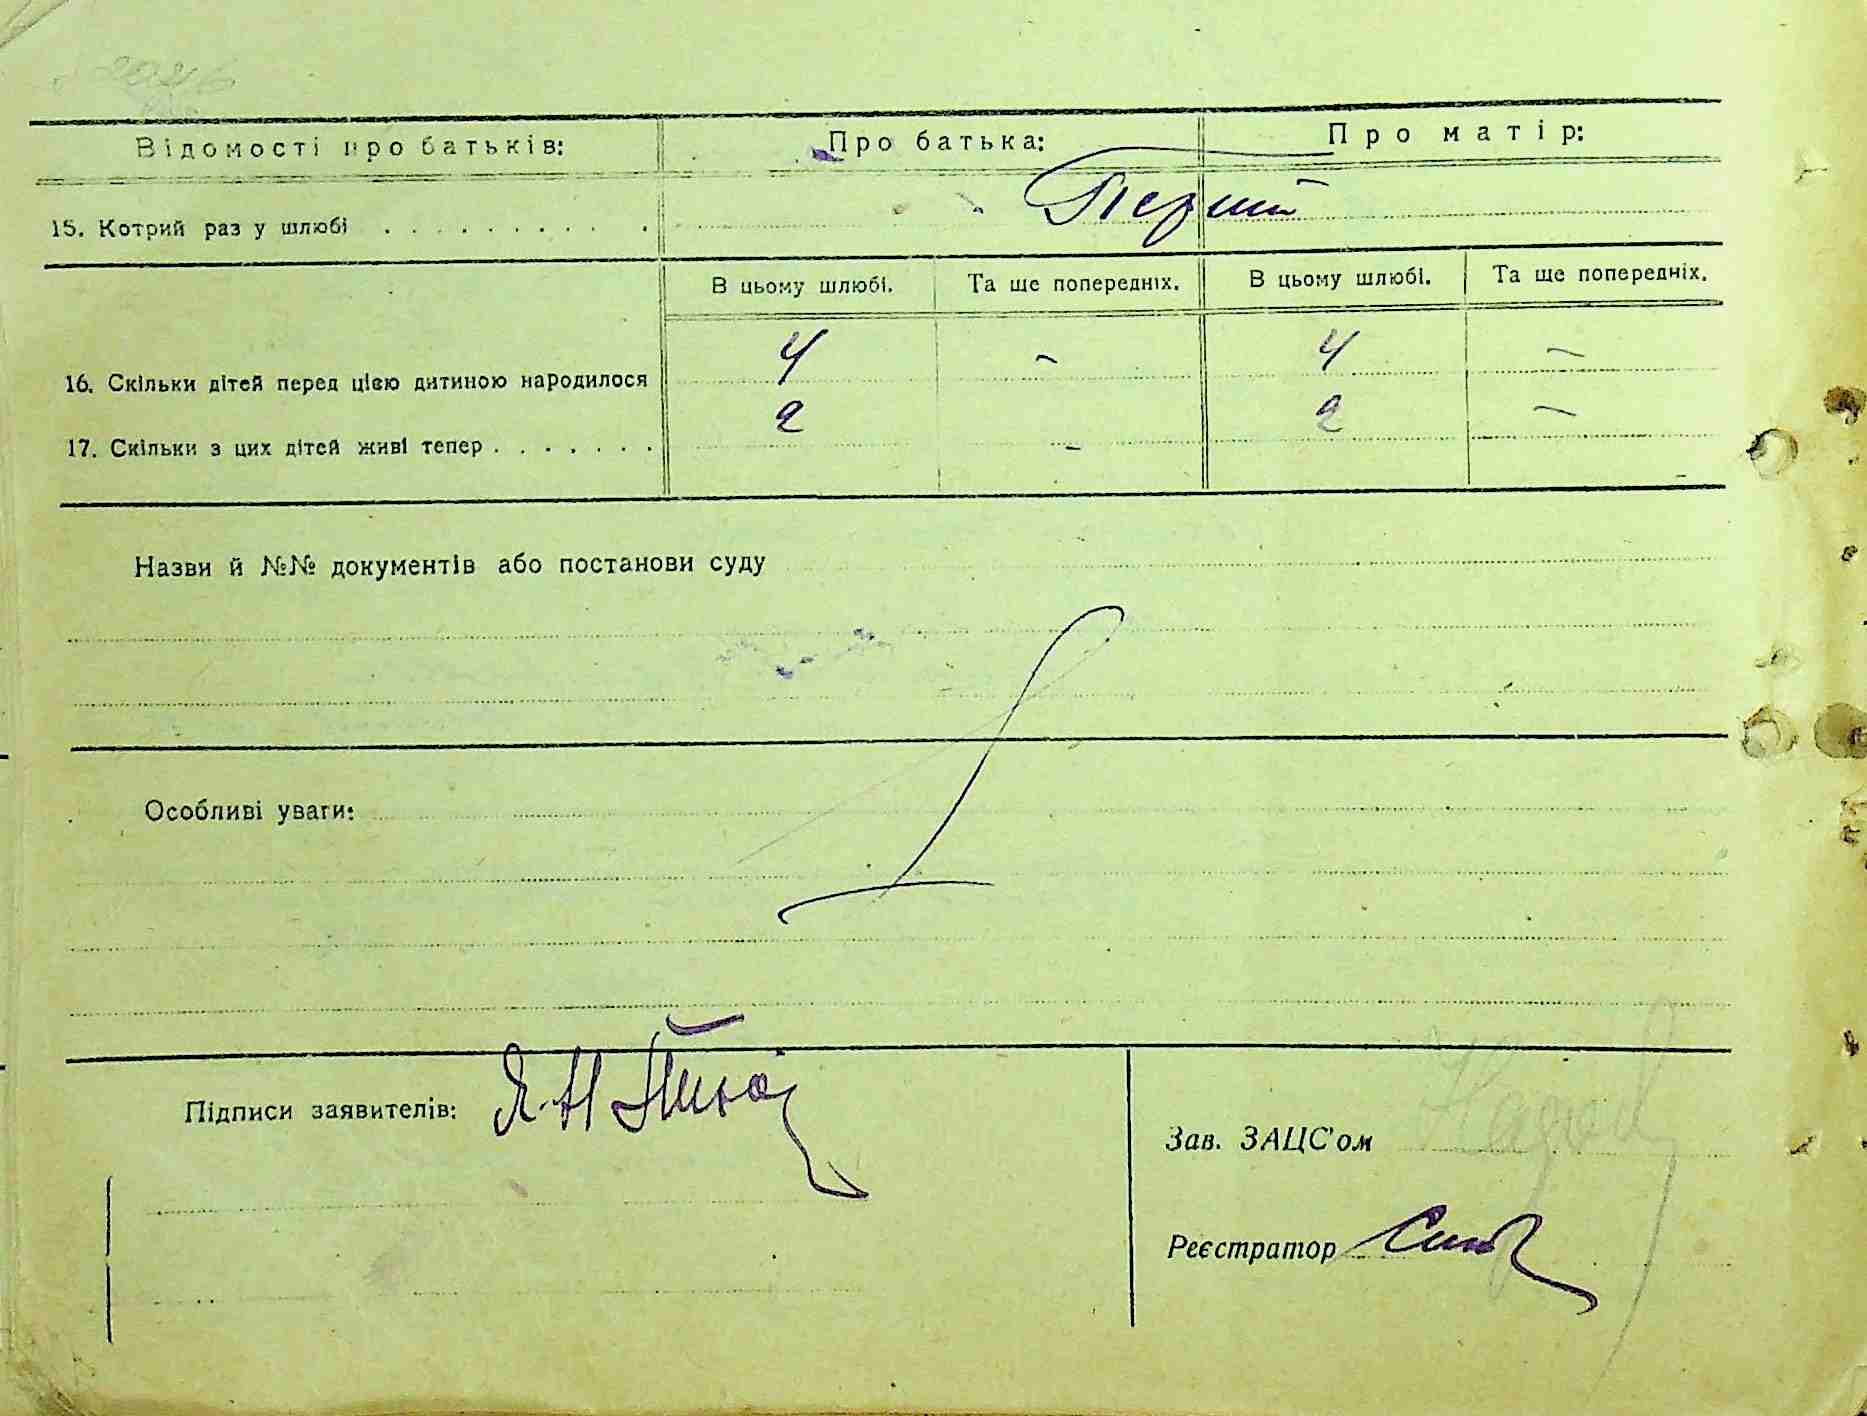 Відомості про батьків: Про батька: Про матір:
15. Котрий раз у шлюбі . . . . . . . . . . Перший
В цьому шлюбі. Та ще попередніх. В цьому шлюбі. Та ще попередніх.
16. Скільки дітей перед цією дитиною народилося 4 - 4 -
17. Скільки з цих дітей живі тепер . . . . . . . 2 - 2 -
Назви й №№ документів або постанови суду
Особливі уваги:
Підписи заявителів:
Зав. ЗАЦС'ом
Реєстратор